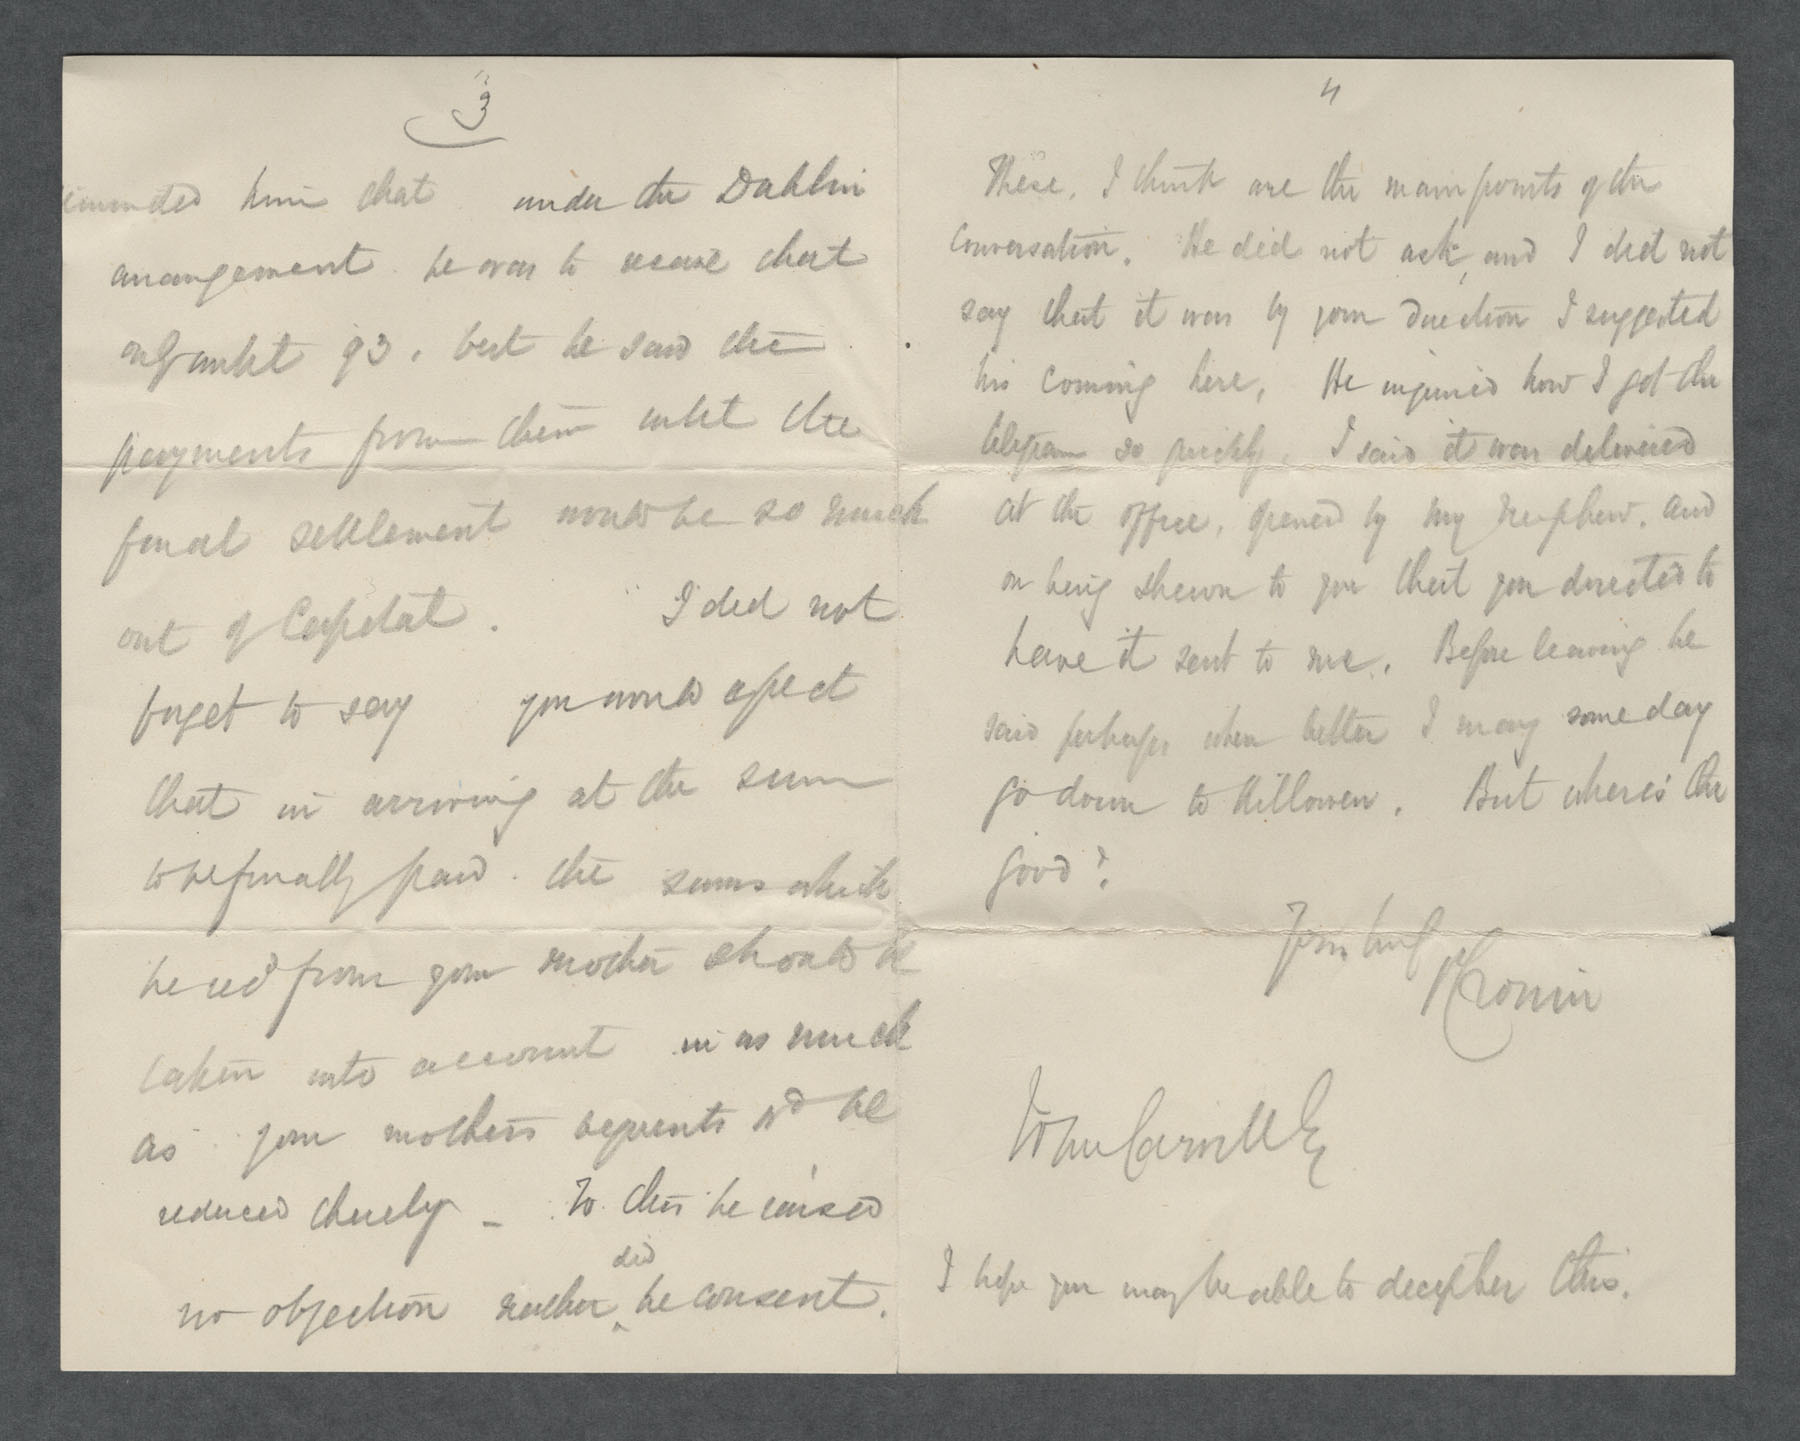 3
reminded him that under the Dublin
arrangement he was to receive that
only until 93, but he said the
payments from them until the
final settlement would be so much
out of Capital. I did not
forget to say you would expect
that in arriving at the sum
to be finally paid the sums which
he recd from your mother should be
taken into account in as much
as your mothers bequests wd be
reduced thereby - To this he raised
no objection neither did he consent.
4
These, I think are the main points of the
Conversation. He did not ask, and I did not
say that it was by your direction I suggested
his coming here. He inquired how I got the
telegram so quickly. I said it was delivered
at the office, opened by my nephew, and
on being shewn to you that you directed to
have it sent to me. Before leaving he
said perhaps when better I may some day
go down to Killowen. But where's the
good?
Cronin
John Carvill Esq
I hope you may be able to decipher this.